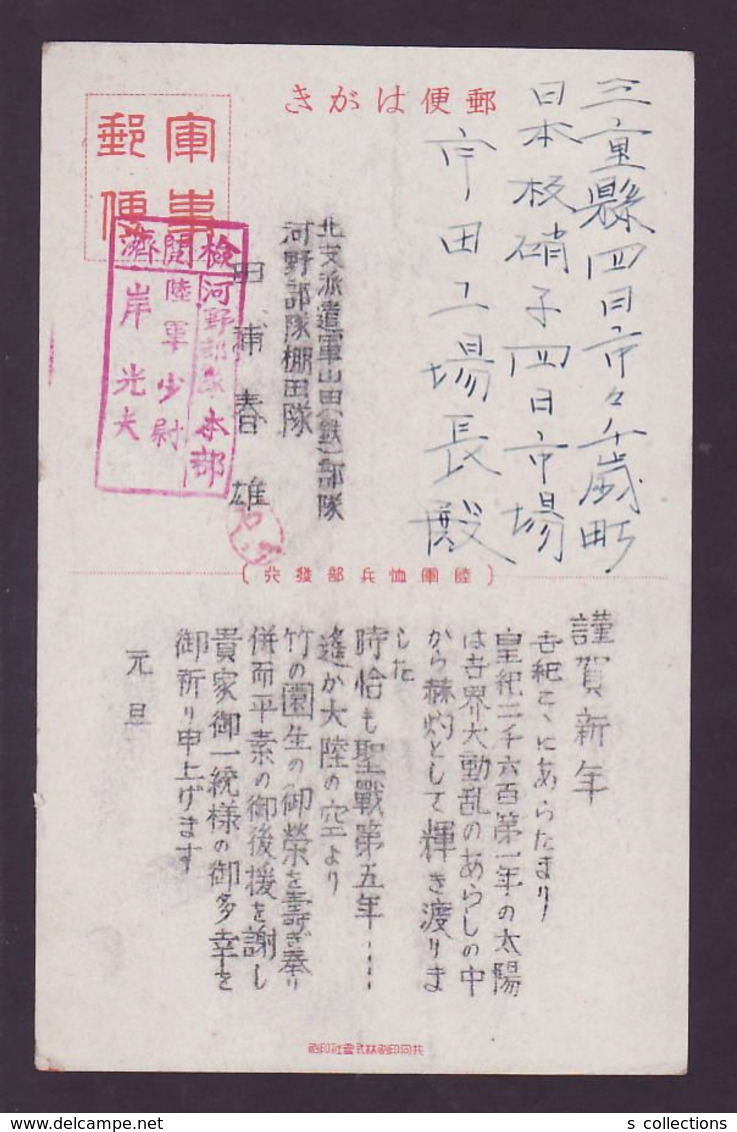 郵便はがき
軍事
郵便
三重縣四日市々千歳町
日本板硝子四日市場
宇田工場長殿
北支派遣軍山田(鉄)部隊
河野部隊棚田隊
田浦春雄
檢閲濟
河野部隊本部
陸軍少尉
岸光夫
{陸軍恤兵部發行}
謹賀新年
吉紀こゝにあらたまり
皇紀二千六百第一年の太陽
は世界大動乱のあらしの中
から赫灼として輝き渡りま
した
時恰も聖戰第五年‥‥
遙か大陸の空より
竹の園生の御榮を壽ぎ奉り
併而平素の御後援を謝し
貴家御一統様の御多幸を
御祈り申上げます
元旦
共同印刷株式會社印刷
s collections